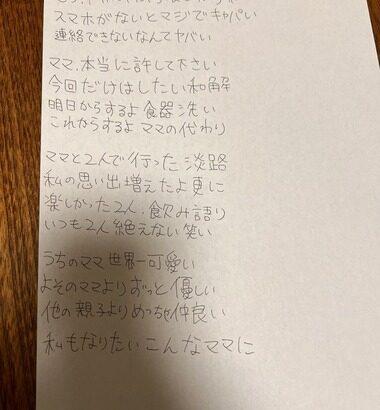 スマホがないとマジでキャパい
連絡できないなんてヤバい
ママ、本当に許して下さい
今回だけはしたい和解
明日からするよ食器洗い
これからするよママの代わり
ママと2人で行った淡路
私の思い出増えたよ更に
楽しかった2人、飲み語り
いつも2人絶えない笑い
うちのママ世界一可愛い
よそのママよりずっと優しい
他の親子よりめっちゃ仲良い
私もなりたいこんなママに